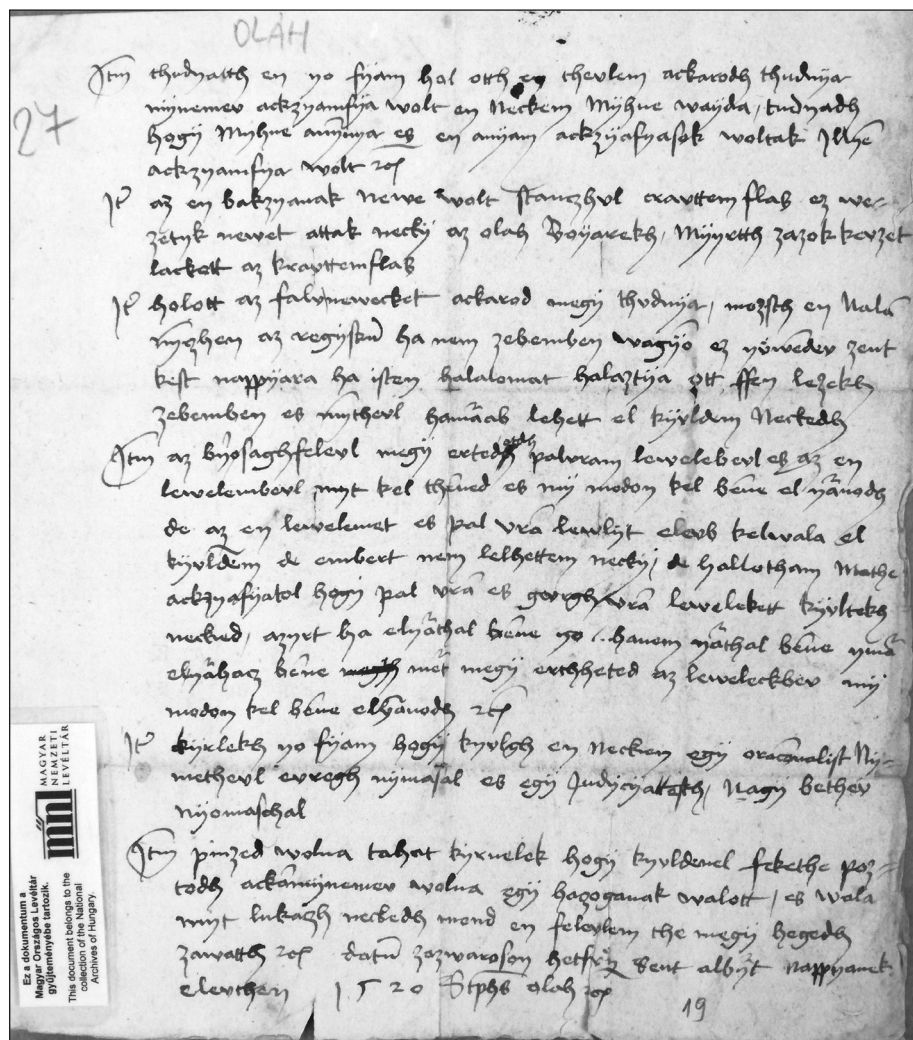 OLAH
27
Itm thudnatth en yo fyam hol otth en thevlem ackarodh thudnya
mynemev ackzyamfya wolt en Neckem Myhne wayda, tudnadh
hogy Myhne annya es en anyam ackzyafyasok woltak Illyen
ackzyamfya wolt etc
It az en bakzyanak newe wolt stanczhvl crayttemflab ez we-
zetyk newet attak necky az olah Boyarekh, Myyrtth zazok kevzet
lackott az krayttemflab
It holott az falvnewecket ackarod megy thvdnya, mozsth en Nalam
nynchen az regystrum ha nem zebemben wagyon ez yowendev zent
kest nappyara ha isten halalomat halaztya ott ffen lezekh
zebemben es mytherl hamarab lehett el kyvldem Neckedh
Itm az byrosaghfelevl megy ertedh otth pal vram lewelebevl es az en
lewelembevl myt kel thenned es my modon kel benne el yarnodh
de az en lewelemet es pal vram lewlyt elevb kelwala el
kyvldem de embert nem lelhettem necky, de hallotham Mathe
ackzyafyatol hogy pal vram es gevrgh vram leweleket kyvltekh
necked, azyrt ha elyarthal benne yo .. hanem yarthal benne ynnen
elyarhacz benne mert megy erthheted az leweleckbev my
modon kel benne elyarnodh etc
It kyrlekh yo fyam hogy kyvlgh en Necken egy oraconalist Ny-
metherl evregh nymassal es egy Judycyattosth, Nagy bethev
nyomaschal
Itm pinzed wolna tahat kyrnelek hogy kyvldenel fekethe poz-
todh ackarminemev wolna egy hazoganak walott, es wala
myt lukazh neckedh mond en felevlem the megy hegedh
zawatth etc datum zazwaroson hetfeyn Sent albyrt nappyanak
elevthen 1520 Stphs olah etc
19
MAGYAR
NEMZETI
LEVÉLTÁR
mnl
Ez a dokumentum a
Magyar Országos Levéltár
gyűjteményébe tartozik.
This document belongs to the
collection of the National
Archives of Hungary.